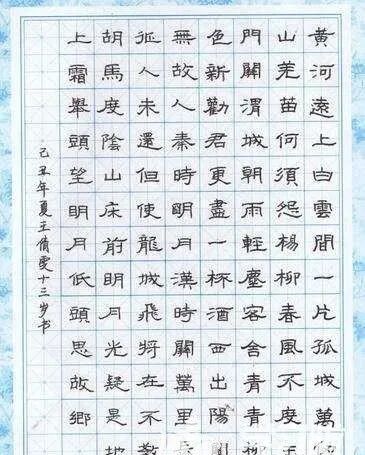 黃河遠上白雲間一片孤城萬仞
山羌笛何須怨楊柳春風不度玉
門關渭城朝雨輕塵客舍青青柳
色新勸君更盡一杯酒西出陽關
無故人秦時明月漢時關萬里長
征人未還但使龍城飛將在不教
胡馬度陰山床前明月光疑是地
上霜舉頭望明月低頭思故鄉
己丑年夏王倩雯十三岁书